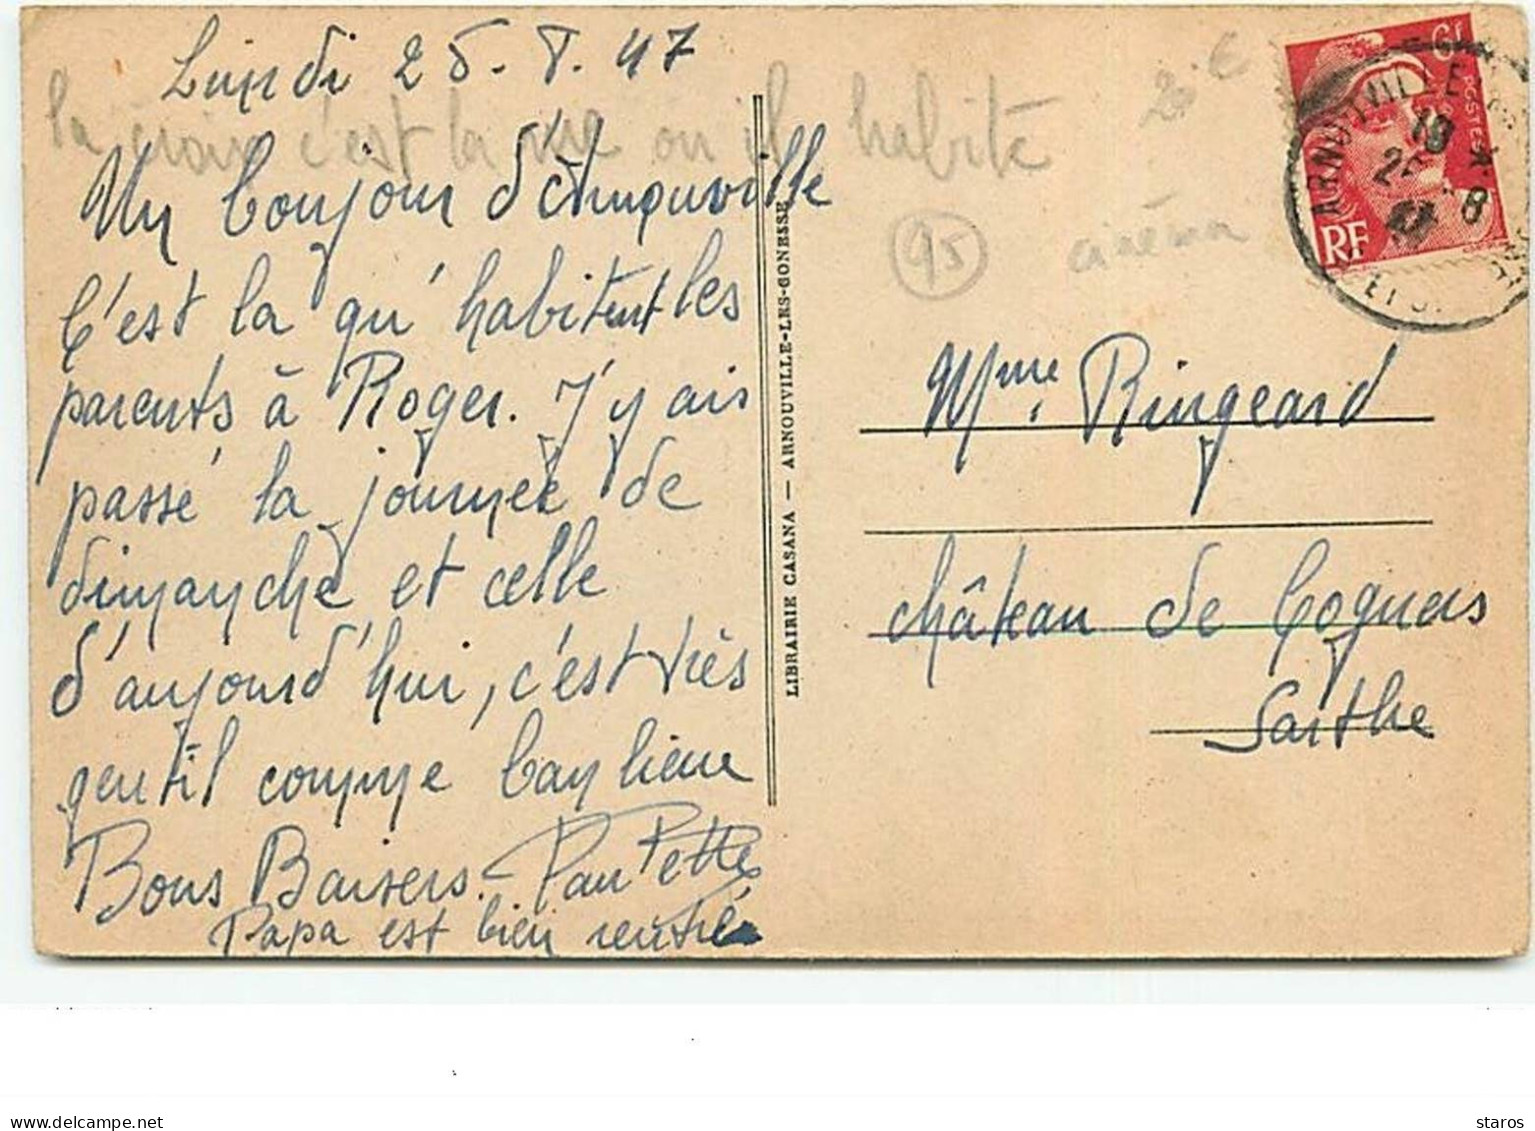 Lundi 25.8.47
la croix c'est la rue ou il habite
Un bonjour d'Arnouville
C'est la qu'habitent les
parents à Roger. J'y ais
passé la journée de
dimanche et celle
d'aujourd'hui, c'est très
gentil comme banlieue
Bons Baisers. Paulette
Papa est bien rentré
LIBRAIRIE CASANA — ARNOUVILLE-LES-GONESSE
20 €
95
cinéma
6f
POSTES
RF
ARNOUVILLE
19
Mme Ringeard
château de Cogners
Sarthe
delcampe.net
staros